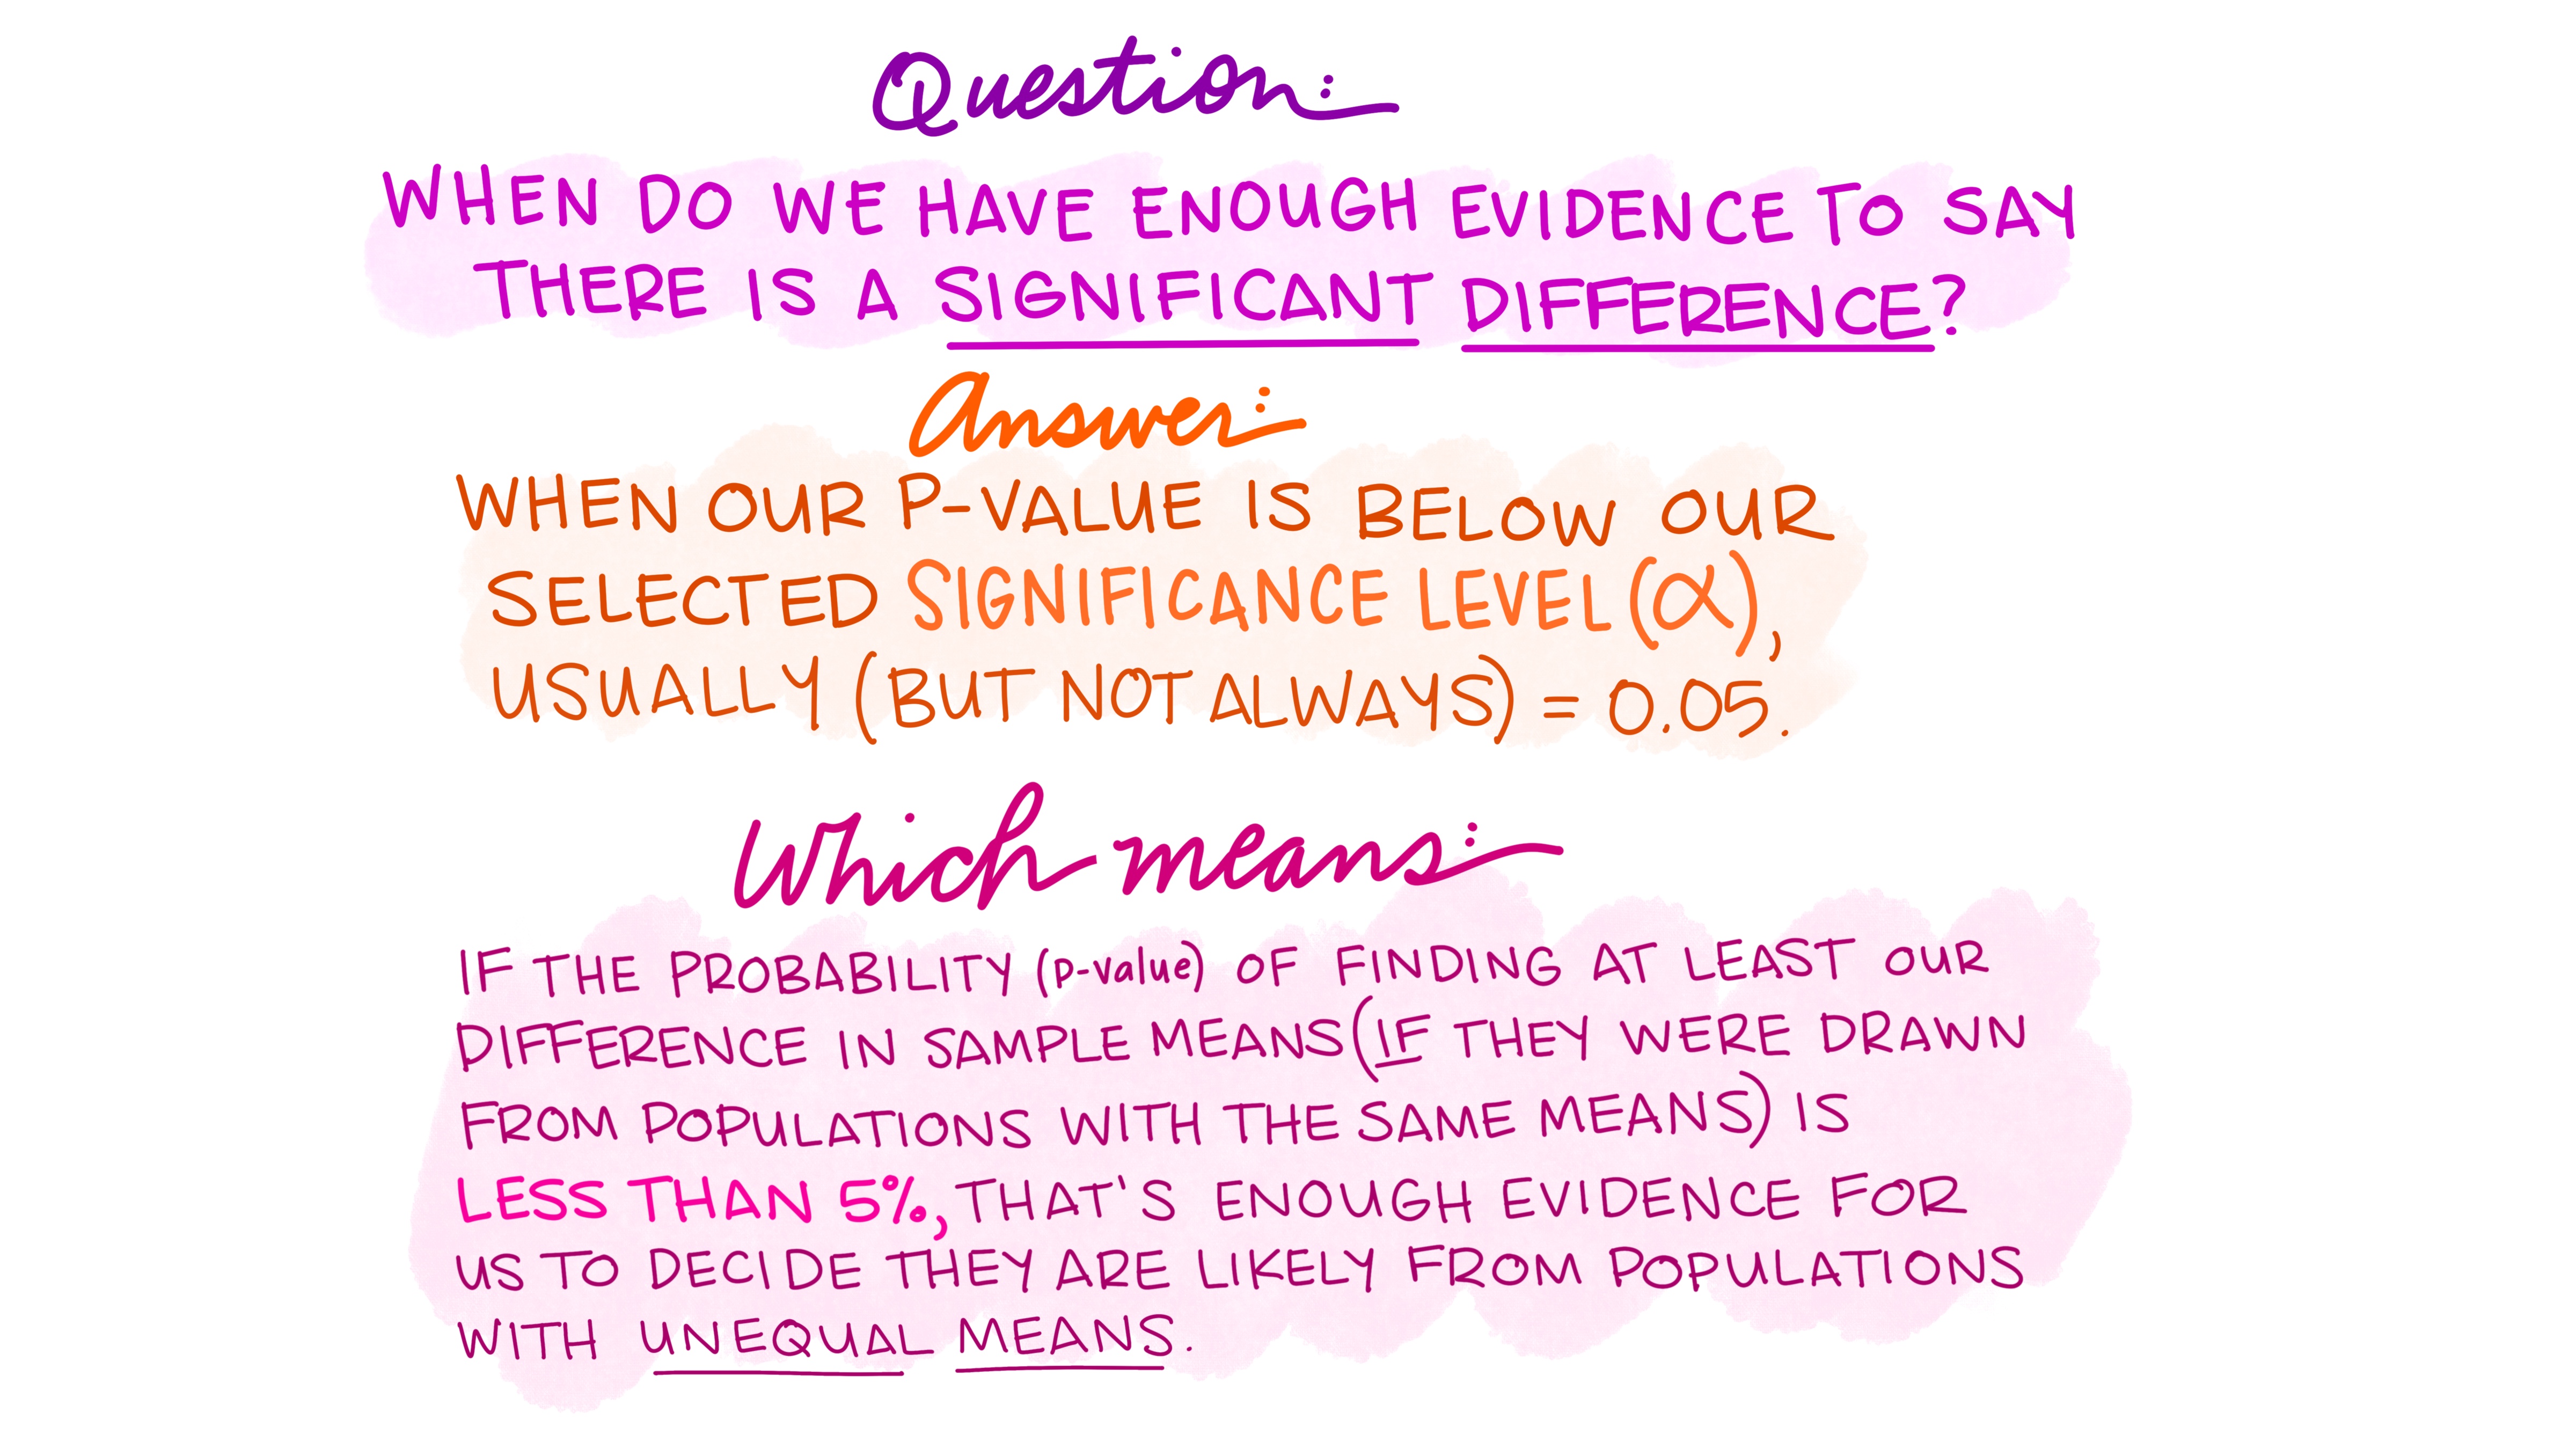 Question:
WHEN DO WE HAVE ENOUGH EVIDENCE TO SAY
THERE IS A SIGNIFICANT DIFFERENCE?
Answer:
WHEN OUR P-VALUE IS BELOW OUR
SELECTED SIGNIFICANCE LEVEL (α),
USUALLY (BUT NOT ALWAYS) = 0.05.
Which means:
IF THE PROBABILITY (p-value) OF FINDING AT LEAST OUR
DIFFERENCE IN SAMPLE MEANS (IF THEY WERE DRAWN
FROM POPULATIONS WITH THE SAME MEANS) IS
LESS THAN 5%, THAT'S ENOUGH EVIDENCE FOR
US TO DECIDE THEY ARE LIKELY FROM POPULATIONS
WITH UNEQUAL MEANS.